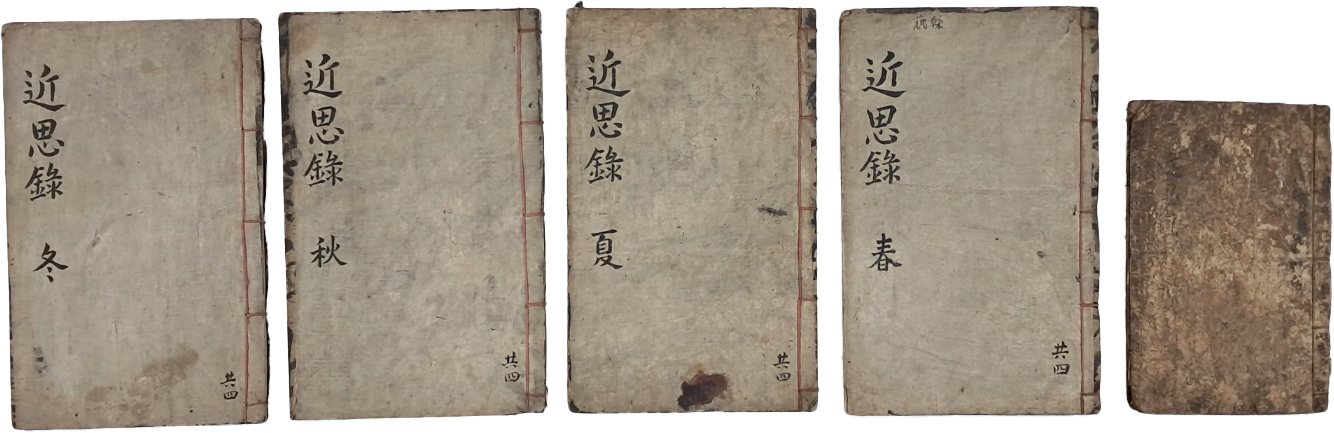 近思錄 春
共四
近思錄 夏
共四
近思錄 秋
共四
近思錄 冬
共四